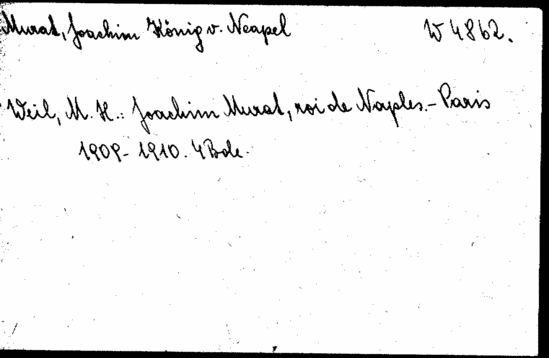 Murat, Joachim König v. Neapel W 4862.
Weil, M. H.: Joachim Murat, roi de Naples.- Paris
1909-1910. 4 Bde.